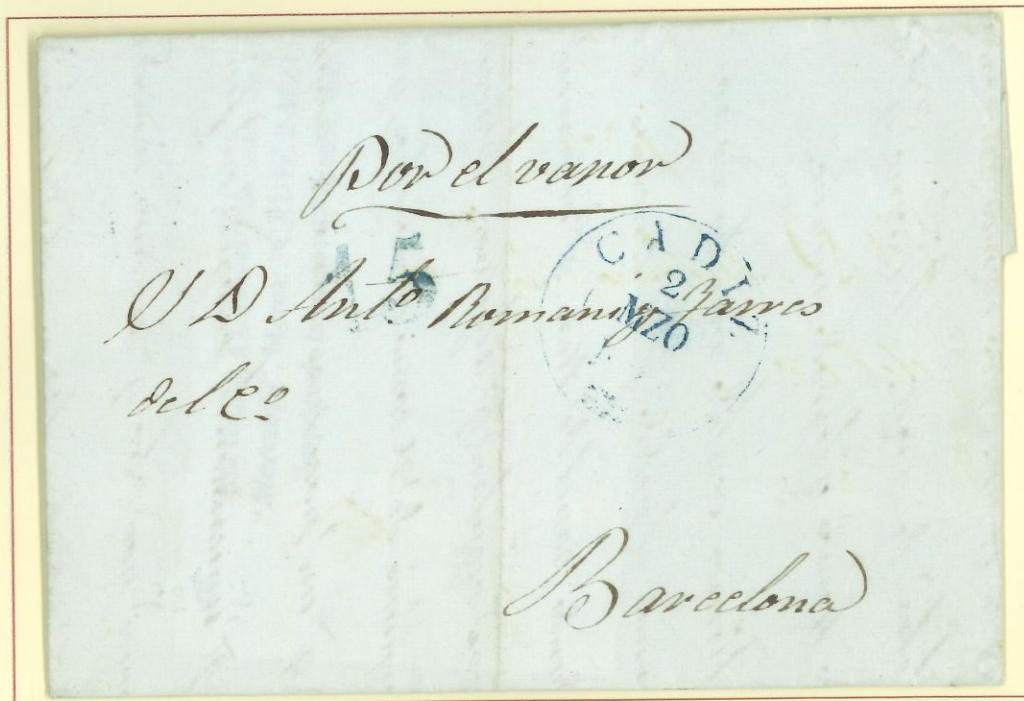 Por el vapor
15
CADIZ
2
MZO
S D Anto Romani y Tarres
del Co
Barcelona